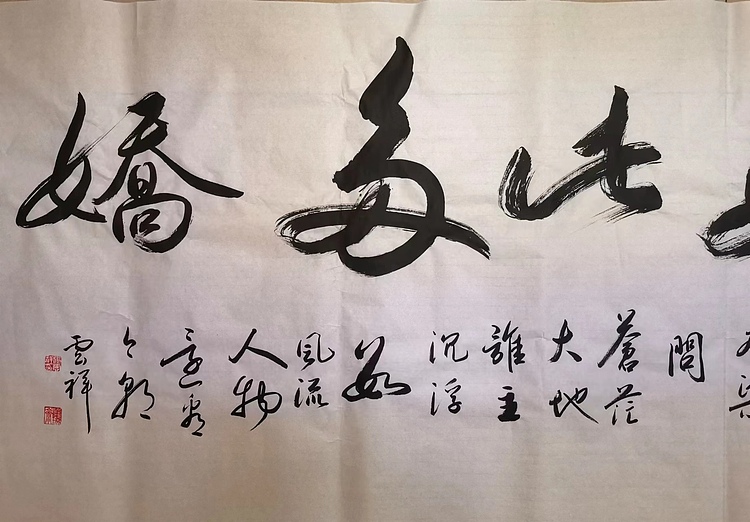 此多嬌
問
蒼茫
大地
誰主
沉浮
數
風流
人物
還看
今朝
雲祥